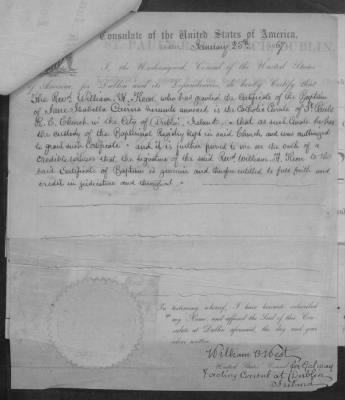 Consulate of the United States of America,
January 25th 1867
I, the Undersigned, Consul of the United States
of America, for Dublin and its Dependencies, do hereby Certify that
The Revd. William H. who has granted the Certificate of the Baptism
of Jane Isabella hereunto annexed is the Catholic Curate of St Pauls
R. C. Church in the City of Dublin, Ireland - that as such Curate he has
the custody of the Baptismal Registry kept in said Church and was authorized
to grant such Certificate - and it is further proved to me on the oath of a
credible witness that the signature of the said Revd. William H. to the
said Certificate of Baptism is genuine and therefore entitled to full faith and
credit in judicature and thereout.
In testimony whereof, I have hereunto subscribed
my Name and affixed the Seal of this Con-
sulate at Dublin aforesaid, the day and year
above written.
William B West
United States Consul for Galway
& acting Consul at Dublin
Ireland